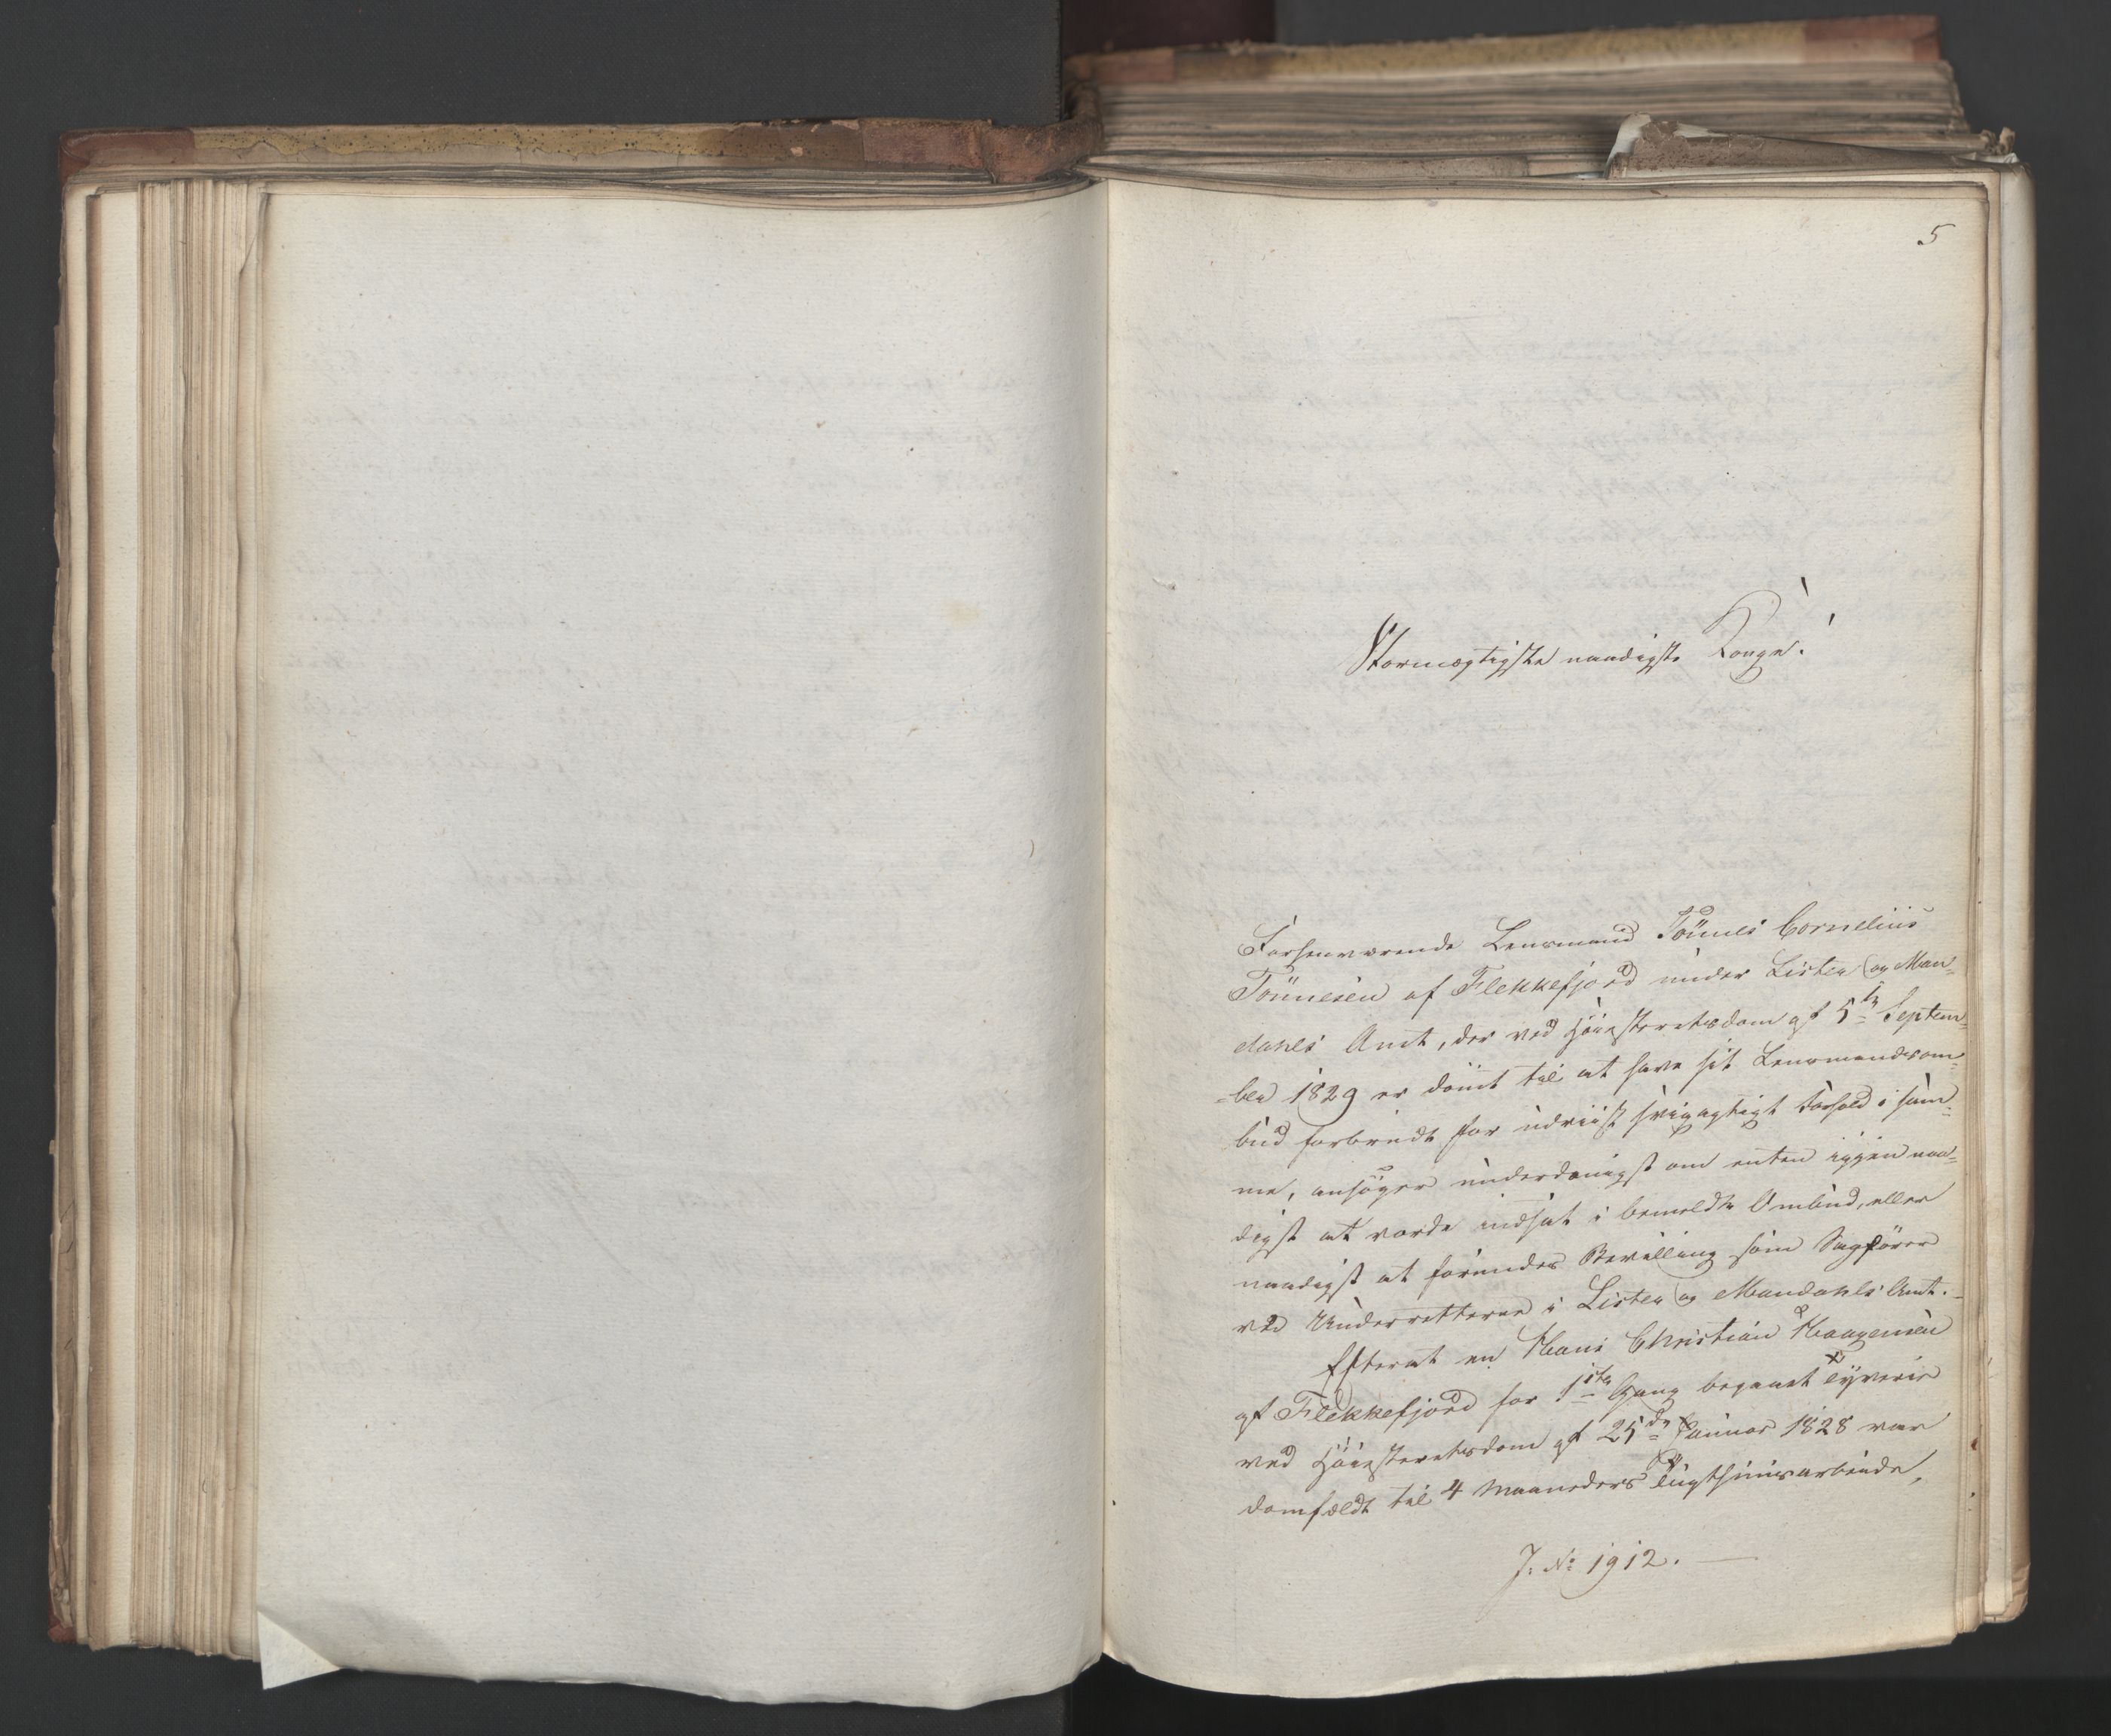 5
Stormægtigste naadigste Konge!
Forhenværende Lensmand Tönnes Cornelius
Tönnesen af Flekkefjord under Lister og Man=
dahls Amt, der ved Höiesteretsdom af 5te Septem=
=ber 1829 er dömt til at have sit Lensmandsom=
bud forbrudt for udviist svigagtigt Forhold i sam=
me, ansöger underdanigst om enten igjen naa=
digst at vorde indsat i bemeldte Ombud, eller
naadigst at forundes Bevilling som Sagförer
ved Underretterne i Lister og Mandahls Amt.
Efterat en Hans Christian Haagensen
af Flekkefjord for 1ste Gang begaaet Tyverie
ved Höiesteretsdom af 25de Januar 1828 var
domfældt til 4 Maaneders Tugthuusarbeide,
J. No 1912.